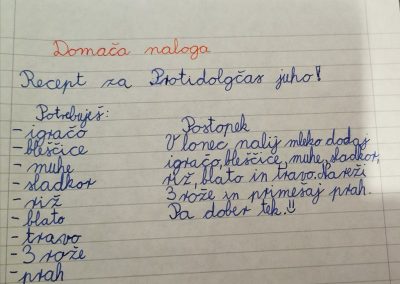 Domača naloga
Recept za Protidolgčas juho!
Potrebuješ:
- igračo
- bleščice
- muhe
- sladkor
- riž
- blato
- travo
- 3 rože
- prah
Postopek
V lonec nalij mleko dodaj
igračo, bleščice, muhe, sladkor,
riž, blato in travo. Nareži
3 rože in primešaj prah.
Pa dober tek!!